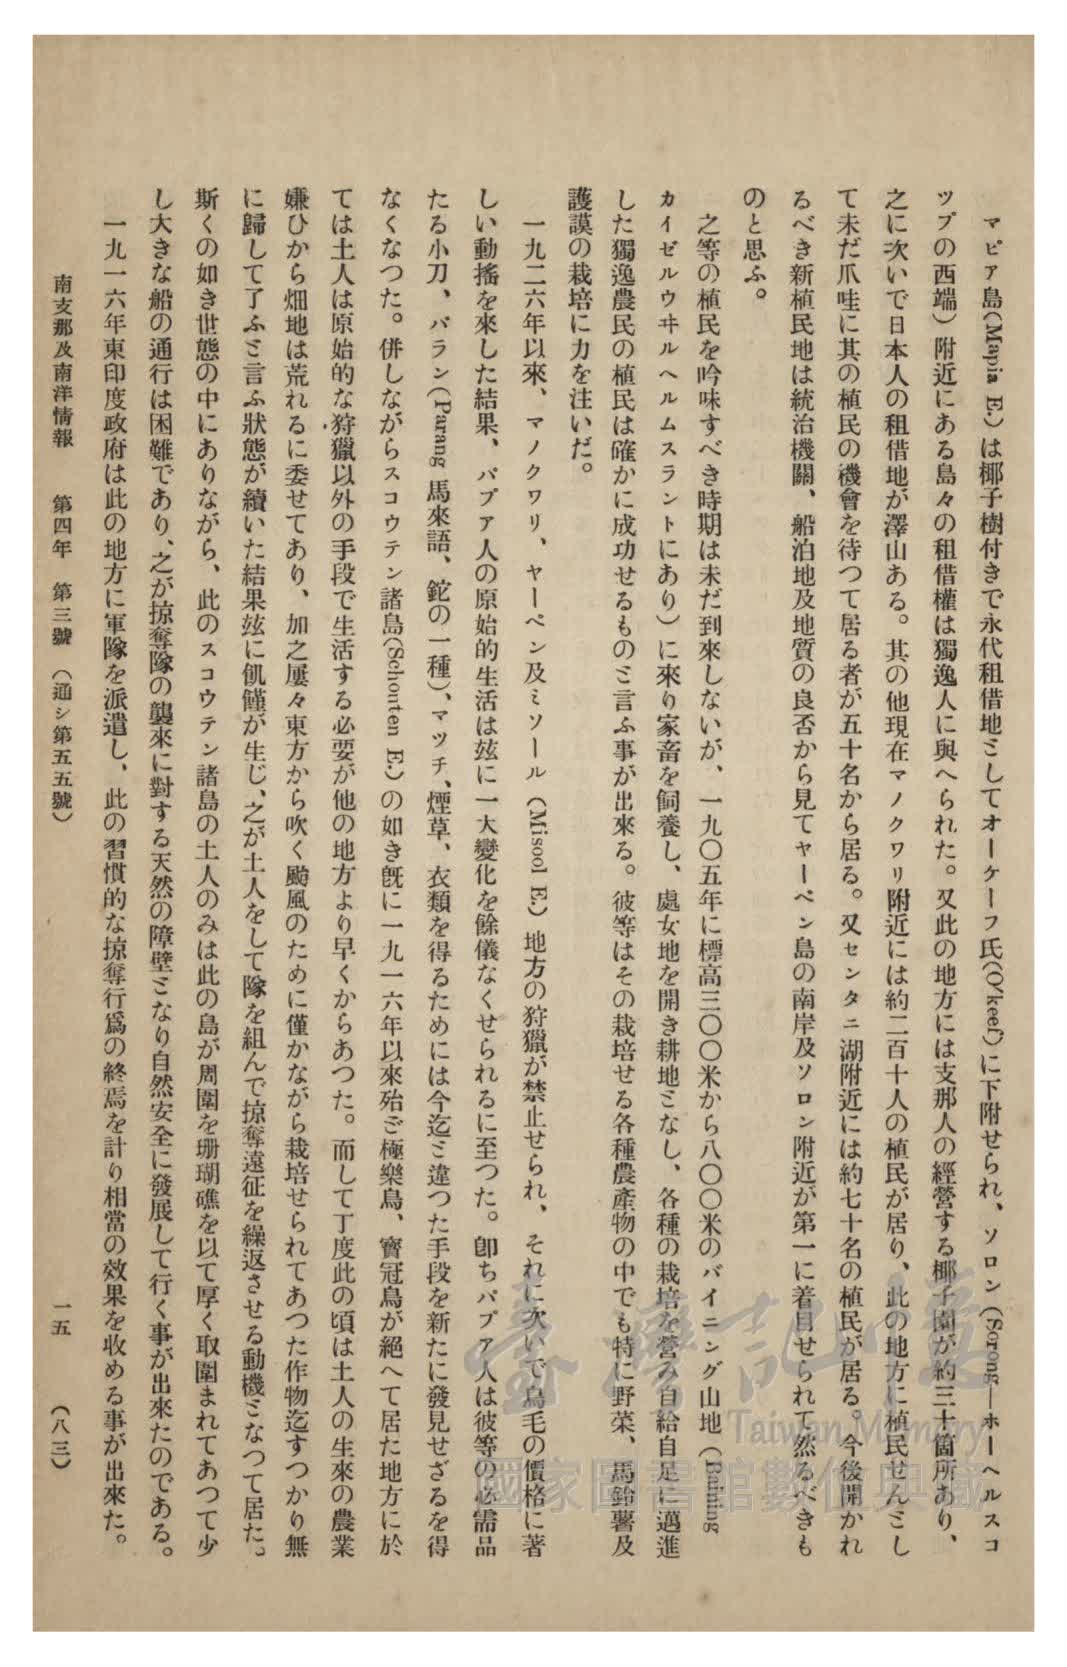 マピア島(Mapia E.)は椰子樹付きで永代租借地としてオーケーフ氏(O'keef)に下附せられ、ソロン(Sorong—ホーヘルスコ
ップの西端)附近にある島々の租借權は獨逸人に與へられた。又此の地方には支那人の經營する椰子園が約三十箇所あり、
之に次いで日本人の租借地が澤山ある。其の他現在マノクワリ附近には約二百十人の植民が居り、此の地方に植民せんとし
て未だ爪哇に其の植民の機會を待つて居る者が五十名から居る。又センタニ湖附近には約七十名の植民が居る。今後開かれ
るべき新植民地は統治機關、船泊地及地質の良否から見てヤーペン島の南岸及ソロン附近が第一に着目せられて然るべきも
のと思ふ。
之等の植民を吟味すべき時期は未だ到來しないが、一九〇五年に標高三〇〇米から八〇〇米のバイニング山地(Baining
カイゼルウヰルヘルムスラントにあり)に來り家畜を飼養し、處女地を開き耕地となし、各種の栽培を營み自給自足に邁進
した獨逸農民の植民は確かに成功せるものと言ふ事が出來る。彼等はその栽培せる各種農產物の中でも特に野菜、馬鈴薯及
護謨の栽培に力を注いだ。
一九二六年以來、マノクワリ、ヤーペン及ミソール(Misool E.)地方の狩獵が禁止せられ、それに次いで鳥毛の價格に著
しい動搖を來した結果、パプア人の原始的生活は玆に一大變化を餘儀なくせられるに至つた。卽ちパプア人は彼等の必需品
たる小刀、パラン(Parang 馬來語、鉈の一種)、マツチ、煙草、衣類を得るためには今迄と違つた手段を新たに發見せざるを得
なくなつた。併しながらスコウテン諸島(Schonten E.)の如き旣に一九一六年以來殆ど極樂鳥、寶冠鳥が絕へて居た地方に於
ては土人は原始的な狩獵以外の手段で生活する必要が他の地方より早くからあつた。而して丁度此の頃は土人の生來の農業
嫌ひから畑地は荒れるに委せてあり、加之屢々東方から吹く颱風のために僅かながら栽培せられてあつた作物迄すつかり無
に歸して了ふと言ふ狀態が續いた結果玆に飢饉が生じ、之が土人をして隊を組んで掠奪遠征を繰返させる動機となつて居た。
斯くの如き世態の中にありながら、此のスコウテン諸島の土人のみは此の島が周圍を珊瑚礁を以て厚く取圍まれてあつて少
し大きな船の通行は困難であり、之が掠奪隊の襲來に對する天然の障壁となり自然安全に發展して行く事が出來たのである。
一九一六年東印度政府は此の地方に軍隊を派遣し、此の習慣的な掠奪行爲の終焉を計り相當の效果を收める事が出來た。
南支那及南洋情報 第四年 第三號 (通シ第五五號) 一五 (八三)
臺灣記憶
Taiwan Memory
國家圖書館數位典藏